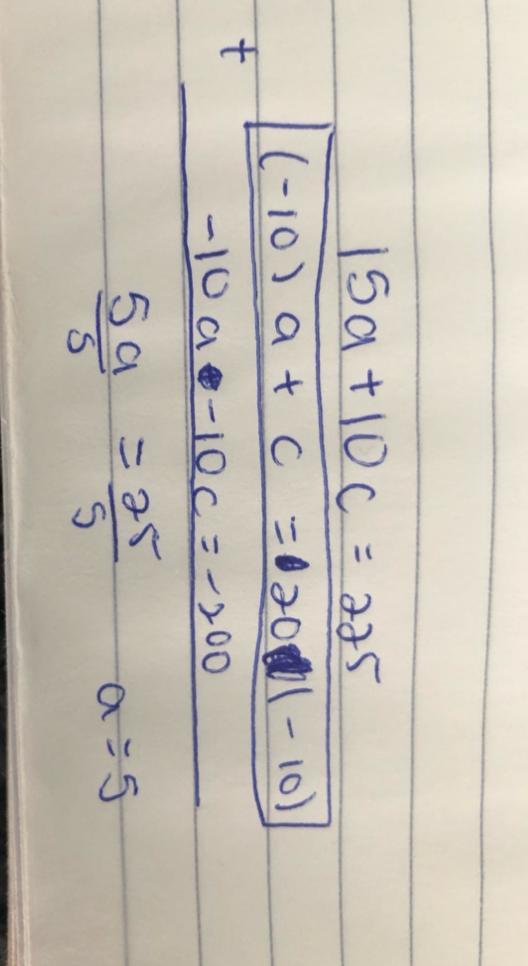 15a + 10c = 225
(-10) a + c = 20 (-10)
+
-10a -10c = -200
5a = 25 a = 5
5 5